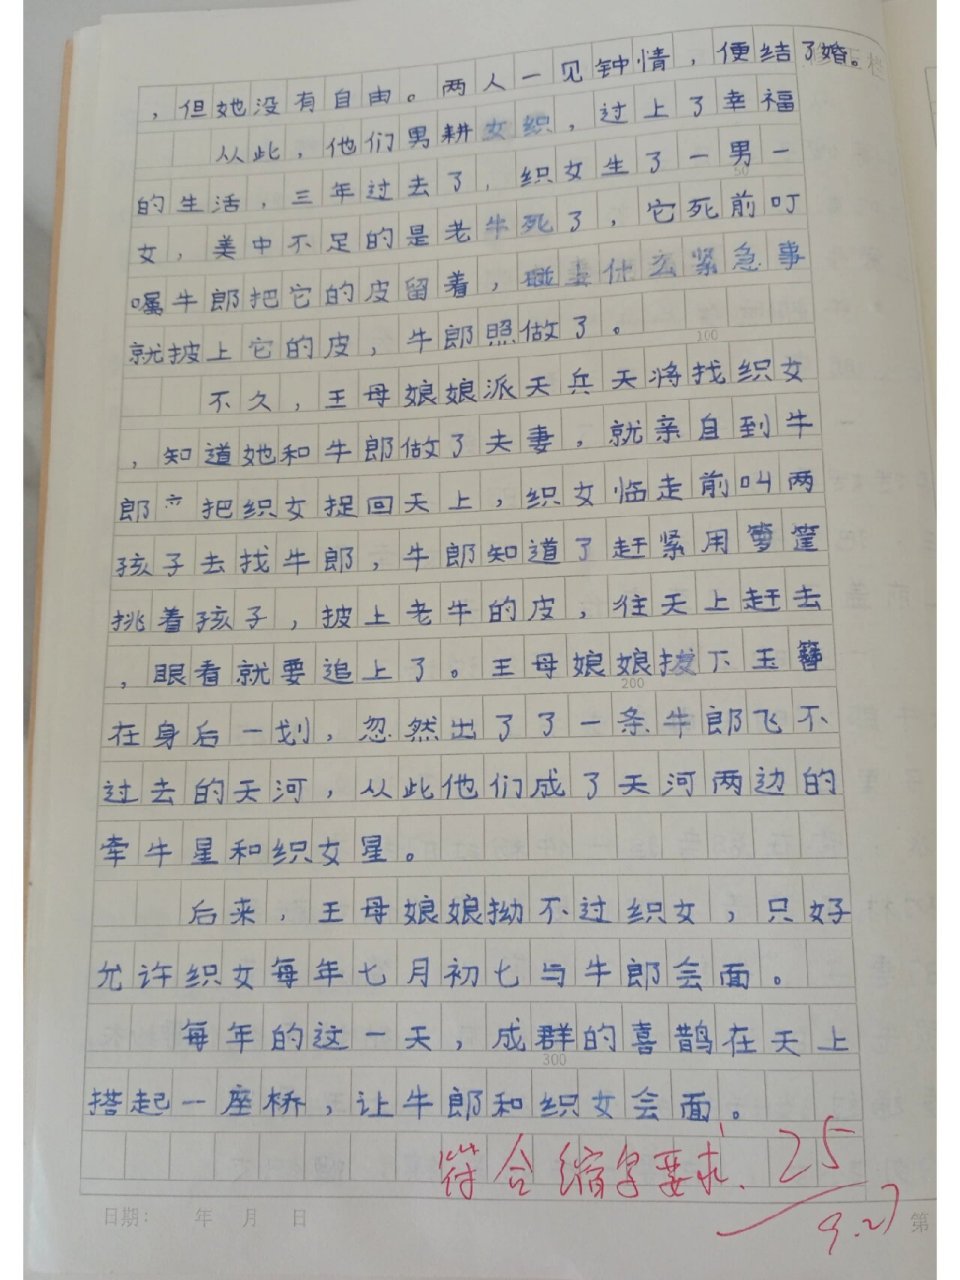 ，但她没有自由。两人一见钟情，便结了婚。
从此，他们男耕女织，过上了幸福
的生活，三年过去了，织女生了一男一
50
女，美中不足的是老牛死了，它死前叮
嘱牛郎把它的皮留着，碰妻什么紧急事
就披上它的皮，牛郎照做了。
100
不久，王母娘娘派天兵天将找织女
，知道她和牛郎做了夫妻，就亲自到牛
郎 把织女捉回天上，织女临走前叫两
孩子去找牛郎，牛郎知道了赶紧用箩筐
挑着孩子，披上老牛的皮，往天上赶去
，眼看就要追上了。王母娘娘拔下玉簪
200
在身后一划，忽然出了了一条牛郎飞不
过去的天河，从此他们成了天河两边的
牵牛星和织女星。
后来，王母娘娘拗不过织女，只好
允许织女每年七月初七与牛郎会面。
每年的这一天，成群的喜鹊在天上
300
搭起一座桥，让牛郎和织女会面。
符合缩字要求。25
9.27
日期： 年 月 日
第